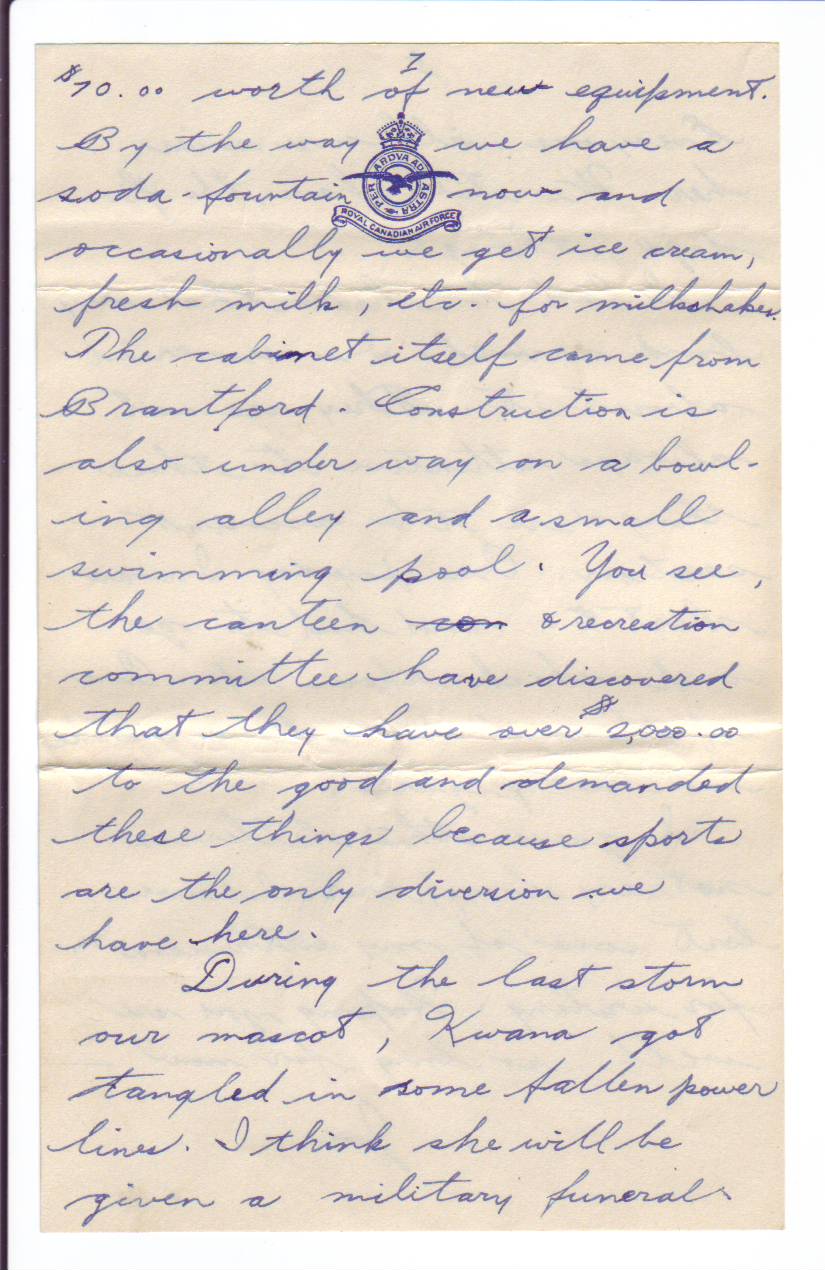 7
$70.00 worth of new equipment.
By the way we have a
soda-fountain now and
PER ARDVA AD ASTRA
ROYAL CANADIAN AIR FORCE
occasionally we get ice cream,
fresh milk, etc. for milkshakes.
The cabinet itself came from
Brantford. Construction is
also under way on a bowl-
ing alley and a small
swimming pool. You see,
the canteen con & recreation
committee have discovered
that they have over $2,000.00
to the good and demanded
these things because sports
are the only diversion we
have here.
During the last storm
our mascot, Kwana got
tangled in some fallen power
lines. I think she will be
given a military funeral.